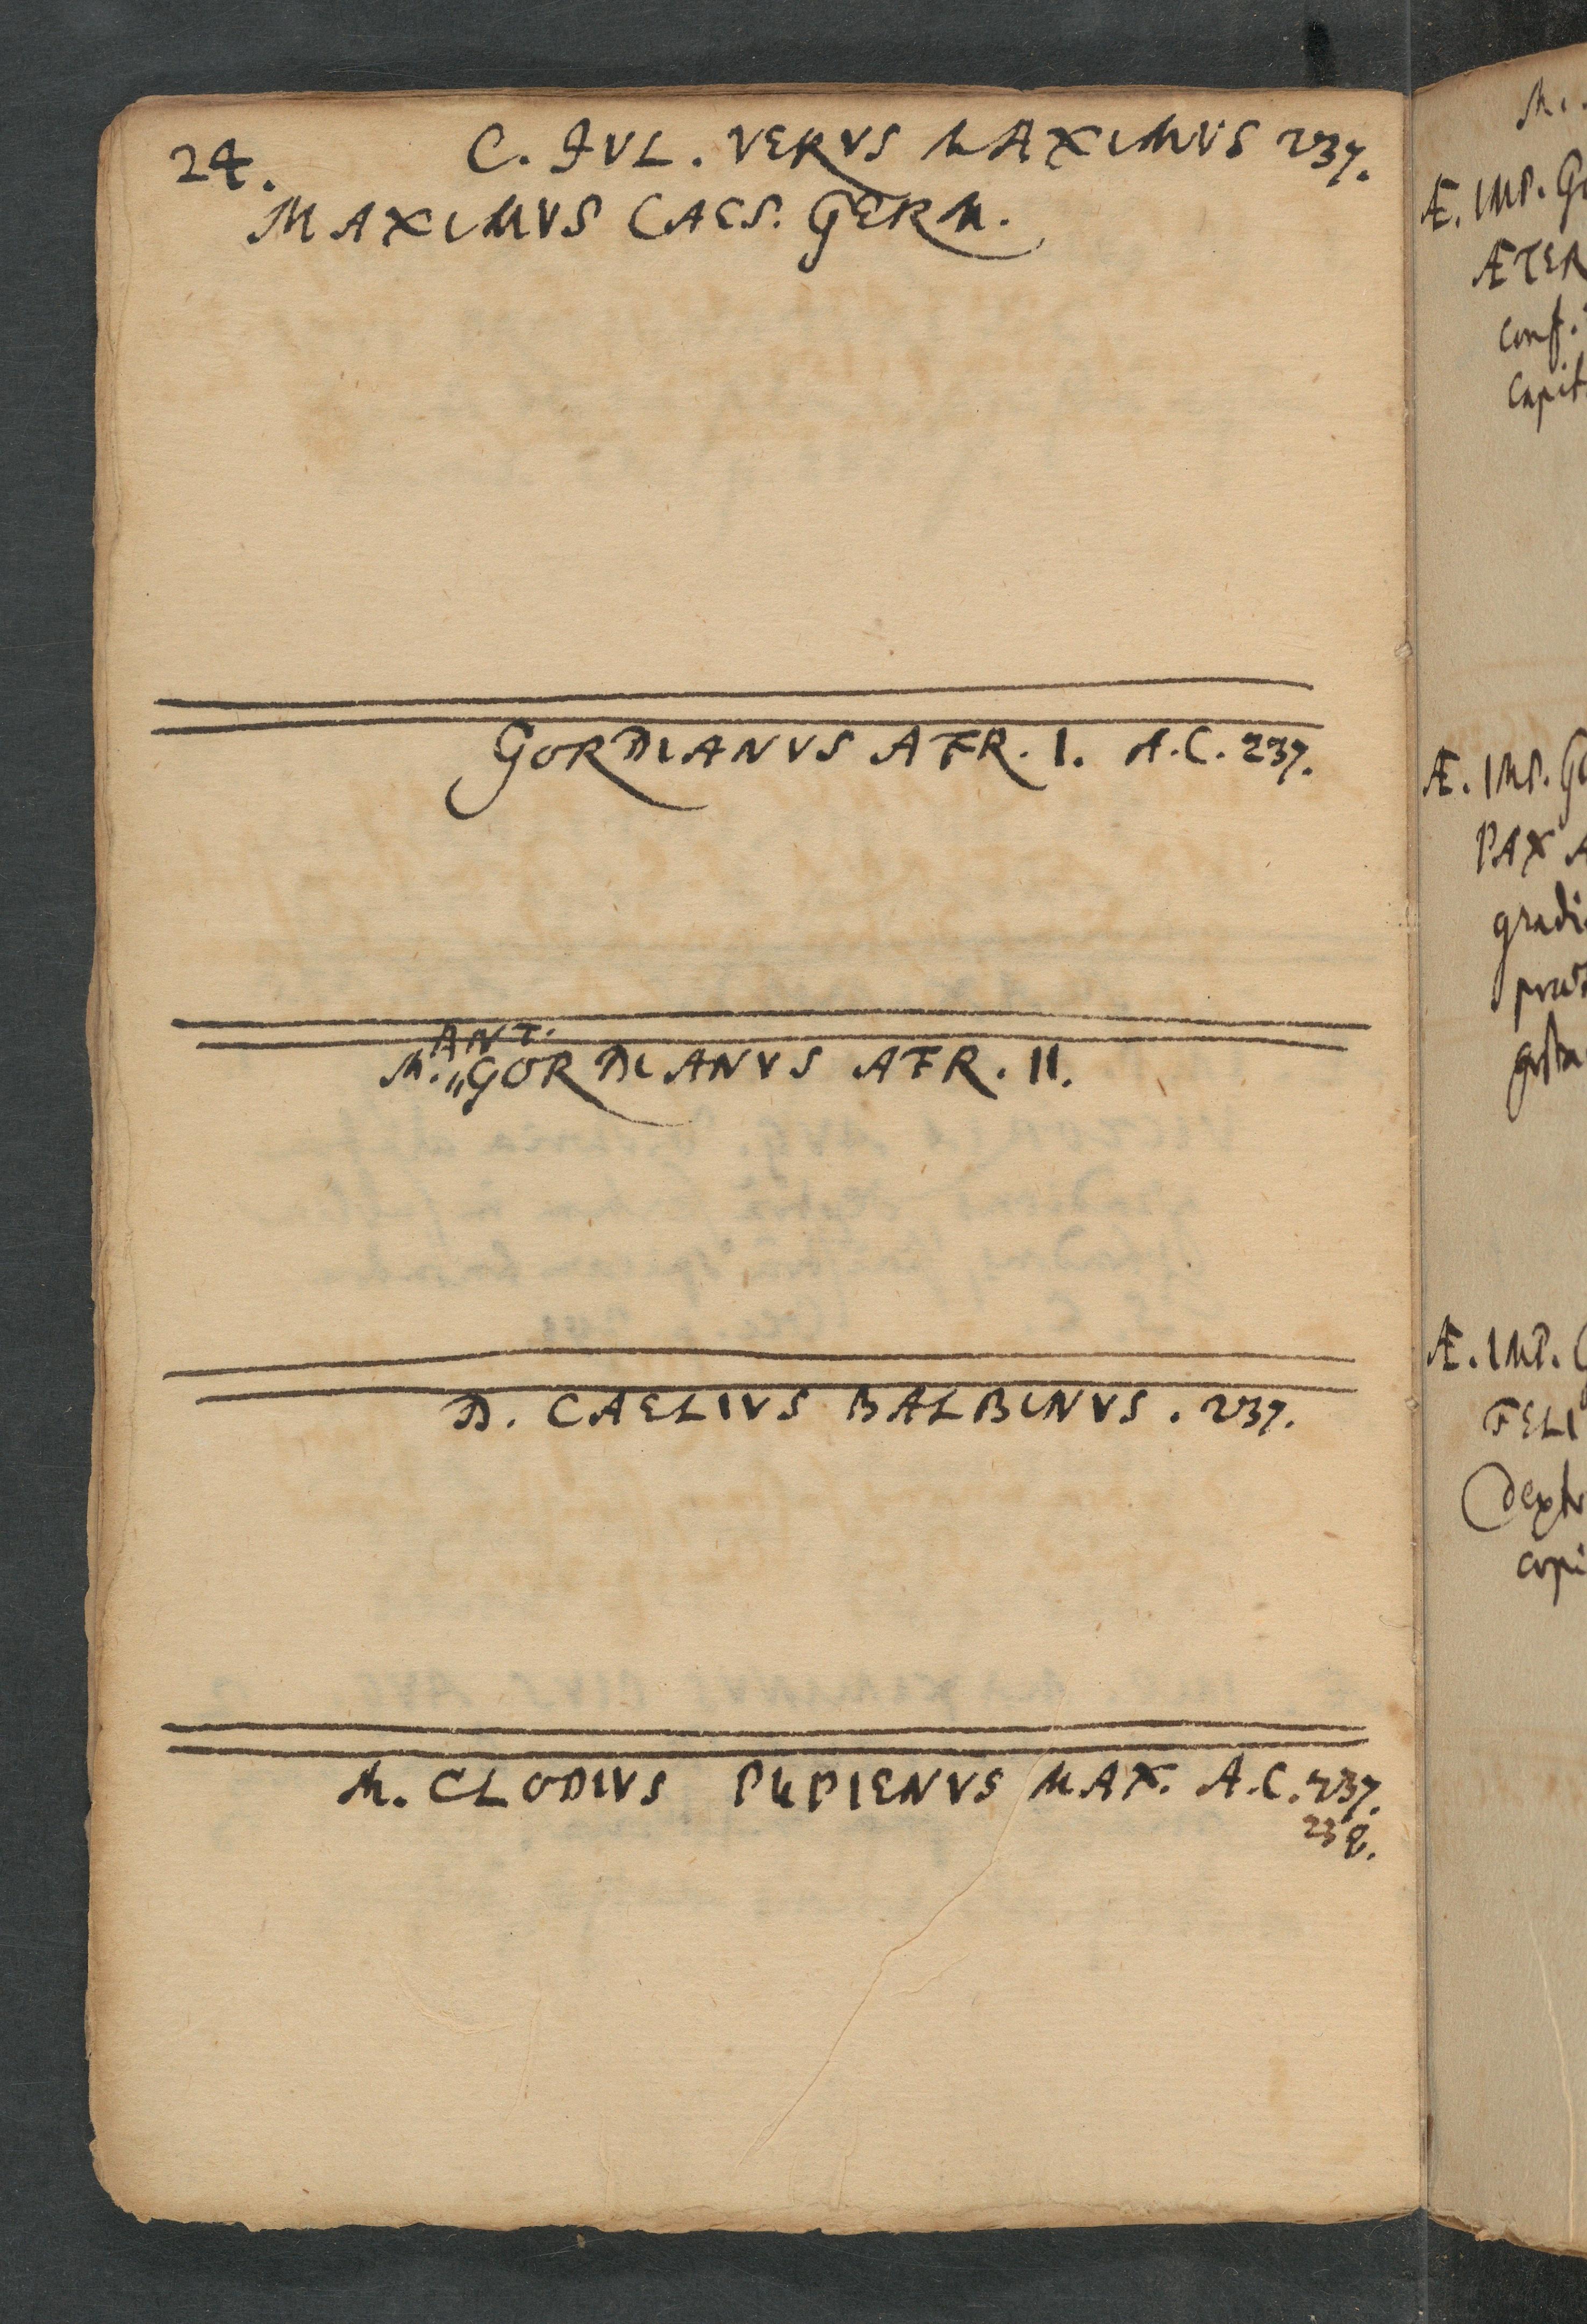 24. C. JVL. VERVS MAXIMVS 237.
MAXIMVS CAES. GERM.
GORDIANVS AFR. I. A.C. 237.
ANT.
M. „GORDIANVS AFR. II.
D. CAELIVS BALBINVS. 237.
M. CLODIVS PUPIENVS MAX. A.C. 237.
238.
Æ. IMP. Go
ÆTER
conf.
Capit
Æ. IMP. GO
PAX A
gradi
Æ. IMP. G
FELI
dextr